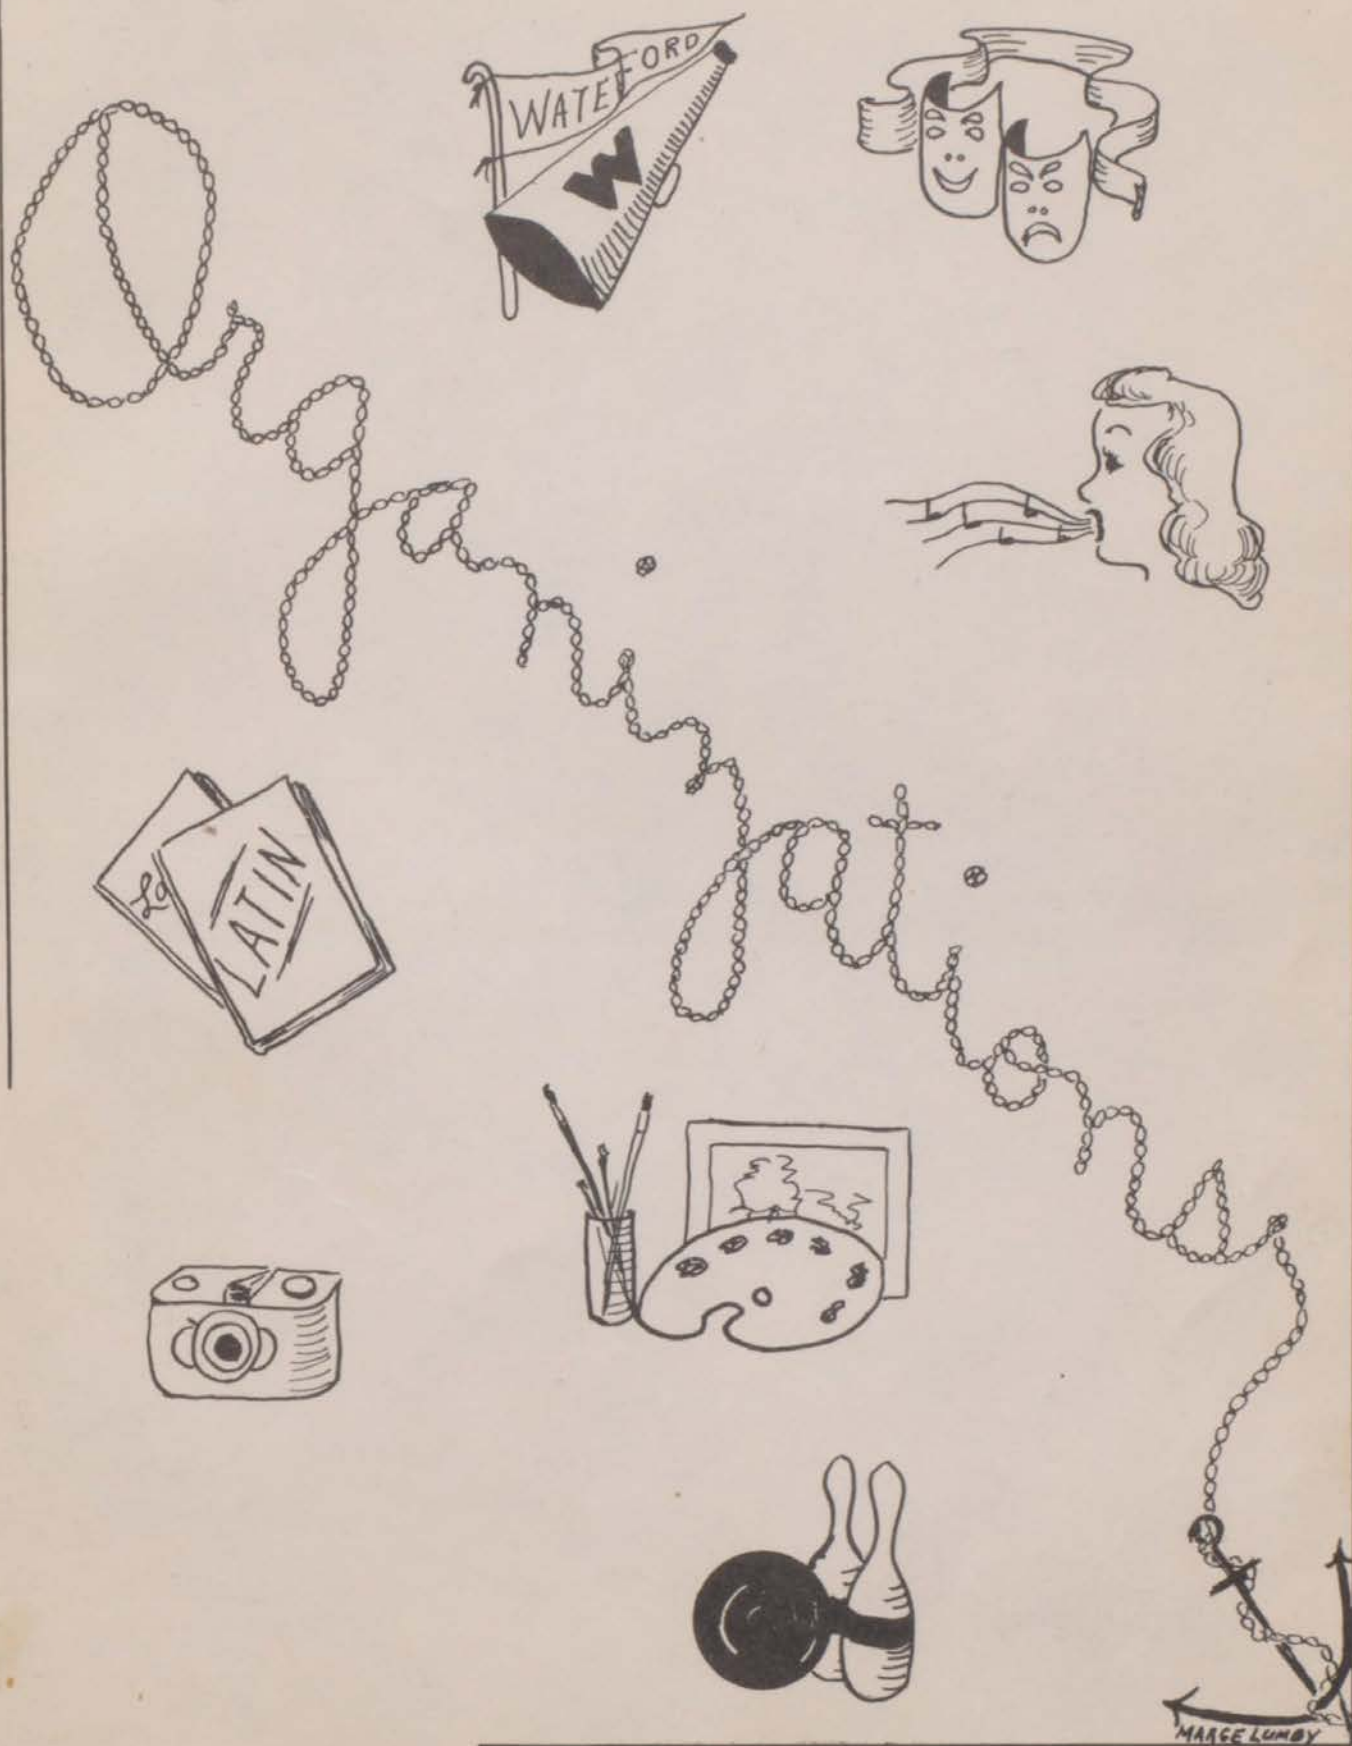 WATERFORD
W
Organizations
La
LATIN
MARGE LUMBY